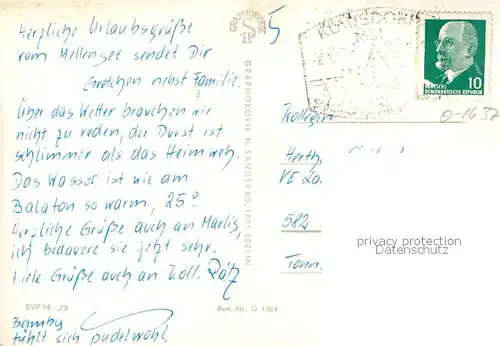 Herzliche Urlaubsgrüße
vom Mellensee sendet Dir
Gretchen nebst Familie.
Über das Wetter brauchen wir
nicht zu reden, der Durst ist
schlimmer als das Heimweh.
Das Wasser ist wie am
Balaton so warm, 25°
Herzliche Grüße auch an Marlis,
ich bedauere sie jetzt sehr.
Viele Grüße auch an Koll.
EVP M -,25
Bamby
fühlt sich pudelwohl.
GRAPHOKOPIE
GRAPHOKOPIE H. SANDERG, 1071 BERLIN
Best.-Nr. G 1984
5
DEUTSCHE
DEMOKRATISCHE REPUBLIK
10
Kollegin
Herth
582
Tonn.
privacy protection
Datenschutz